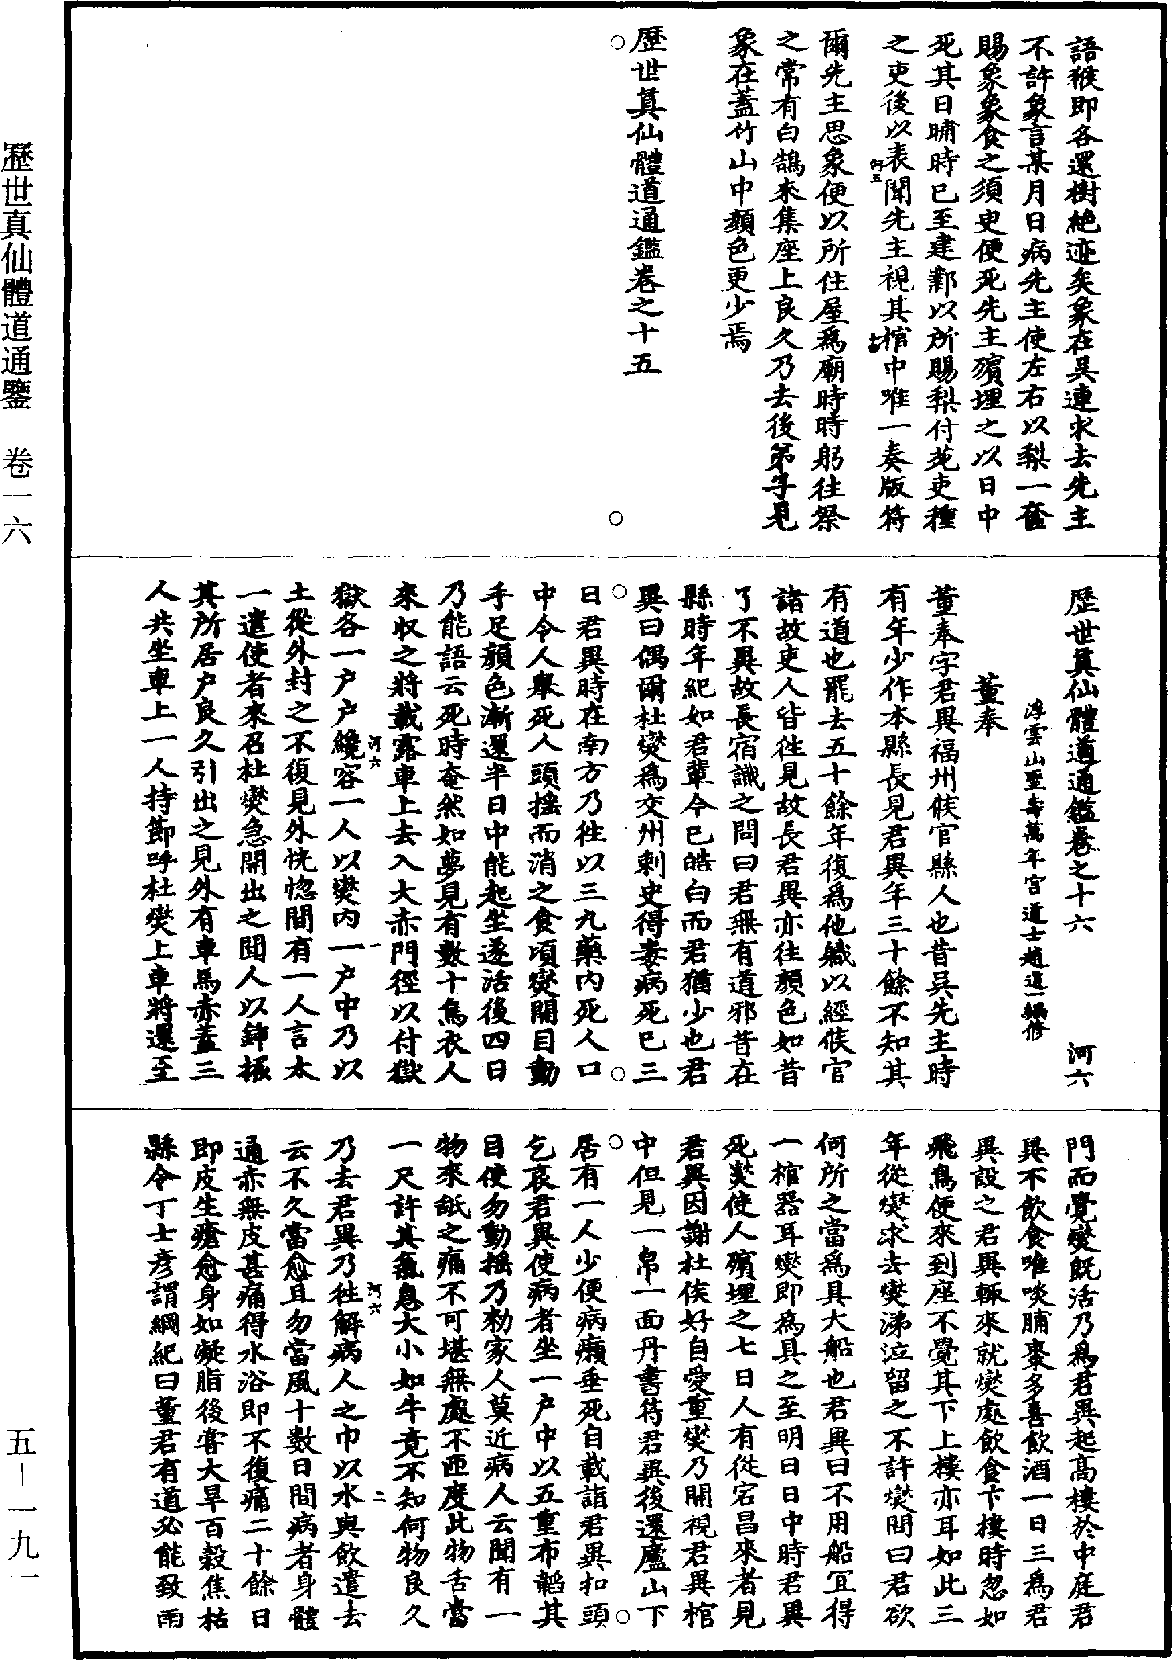 歷世真仙體道通鑒　卷一六
五－一九一
語猴即各還樹絶迹矣象在吳連求去先主
不許象言某月日病先主使左右以梨一奩
賜象象食之須臾便死先主殯埋之以日中
死其日晡時已至建鄴以所賜梨付苑吏種
之吏後以表聞先主視其棺中唯一奏版符
爾先主思象便以所住屋爲廟時時躬往祭
之常有白鵠來集座上良久乃去後弟子見
象在蓋竹山中顏色更少焉
歷世真仙體道通鑑卷之十五
歷世真仙體道通鑑卷之十六　河六
浮雲山聖壽萬年宮道士趙道一編修
董奉
董奉字君異福州候官縣人也昔吳先主時
有年少作本縣長見君異年三十餘不知其
有道也罷去五十餘年復爲他職以經候官
諸故吏人皆往見故長君異亦往顏色如昔
了不異故長宿識之問曰君無有道邪昔在
縣時年紀如君輩今已皓白而君猶少也君
異曰偶爾杜燮爲交州刺史得毒病死已三
日君異時在南方乃往以三丸藥内死人口
中令人舉死人頭搖而消之食頃燮開目動
手足顏色漸還半日中能起坐遂活後四日
乃能語云死時奄然如夢見有數十烏衣人
來収之將載露車上去入大赤門徑以付獄
獄各一户户纔容一人以燮内一户中乃以
土從外封之不復見外恍惚間有一人言太
一遣使者來召杜燮急開出之聞人以鍤掘
其所居户良久引出之見外有車馬赤蓋三
人共坐車上一人持節呼杜燮上車將還至
門而覺燮既活乃爲君異起高樓於中庭君
異不飲食唯啖脯棗多喜飲酒一日三爲君
異設之君異輒來就燮處飲食下樓時忽如
飛鳥便來到座不覺其下上樓亦耳如此三
年從燮求去燮涕泣留之不許燮問曰君欲
何所之當爲具大船也君異曰不用船宜得
一棺器耳燮即爲具之至明日日中時君異
死燮使人殯埋之七日人有從宕昌來者見
君異因謝杜侯好自愛重燮乃開視君異棺
中但見一帛一面丹書符君異後還廬山下
居有一人少便病癩垂死自載詣君異扣頭
乞哀君異使病者坐一户中以五重布韜其
目使勿動搖乃勑家人莫近病人云聞有一
物來舐之痛不可堪無處不匝度此物舌當
一尺許其氣息大小如牛竟不知何物良久
乃去君異乃往解病人之巾以水與飲遣去
云不久當愈且勿當風十數日間病者身體
通赤無皮甚痛得水浴即不復痛二十餘日
即皮生瘡愈身如凝脂後嘗大旱百穀焦枯
縣令丁士彦謂綱紀曰董君有道必能致雨